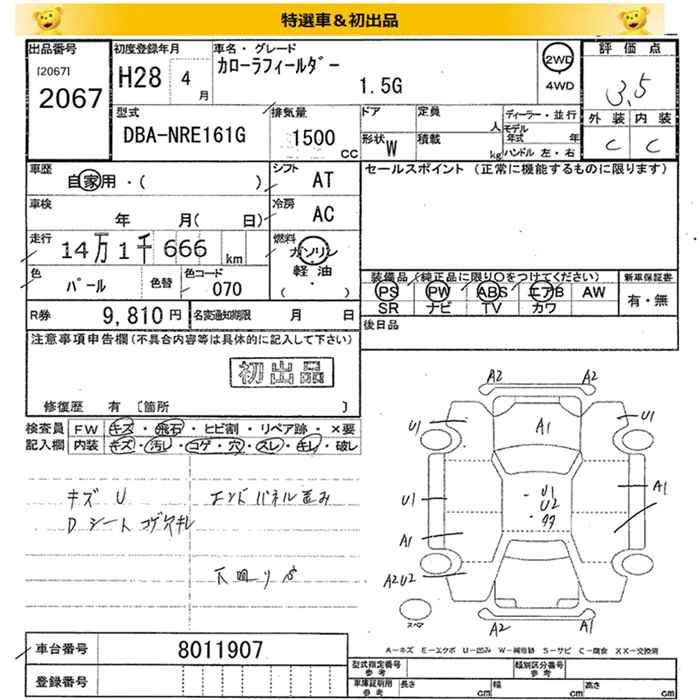 特選車＆初出品
出品番号 初度登録年月 車名・グレード 2WD 評価点
[2067] H28 4 月 カローラフィールダー 1.5G 4WD 3.5
2067
外装 内装
C C
型式 排気量 ドア 定員 人 ディーラー・並行
DBA-NRE161G 1500 CC 形状 W 積載 kg モデル年式 年
ハンドル 左・右
車歴 自家用・( ) シフト AT セールスポイント (正常に機能するものに限ります)
車検 年 月( 日) 冷房 AC
走行 14万1千666 km 燃料 ガソリン
軽油
( ・ )
色 パール 色替 色コード 070
装備品 (純正品に限り○をつけてください) 新車保証書
PS PW ABS エアB AW 有・無
SR ナビ TV カワ
R券 9,810円 名変通知期限 月 日 後日品
注意事項申告欄(不具合内容等は具体的に記入して下さい)
初出品
修復歴 有 [箇所 ]
検査員 FW キズ・飛石・ヒビ割・リペア跡・×要
記入欄 内装 キズ・汚レ・コゲ・穴・スレ・キレ・破レ
キズ U エンドパネル歪み
D シート コゲ穴キレ
下回りサビ
A2 A2
U1 A1 U1
U1 U1 A1
U2
A1
A2U2
スペア A2 A1
A－キズ E－エクボ U－凹み W－補修跡 S－サビ C－腐食 XX－交換済
車台番号 8011907 型式指定番号 参考 類別区分番号 参考
登録番号 車庫証明用 参考 長さ cm 幅 cm 高さ cm